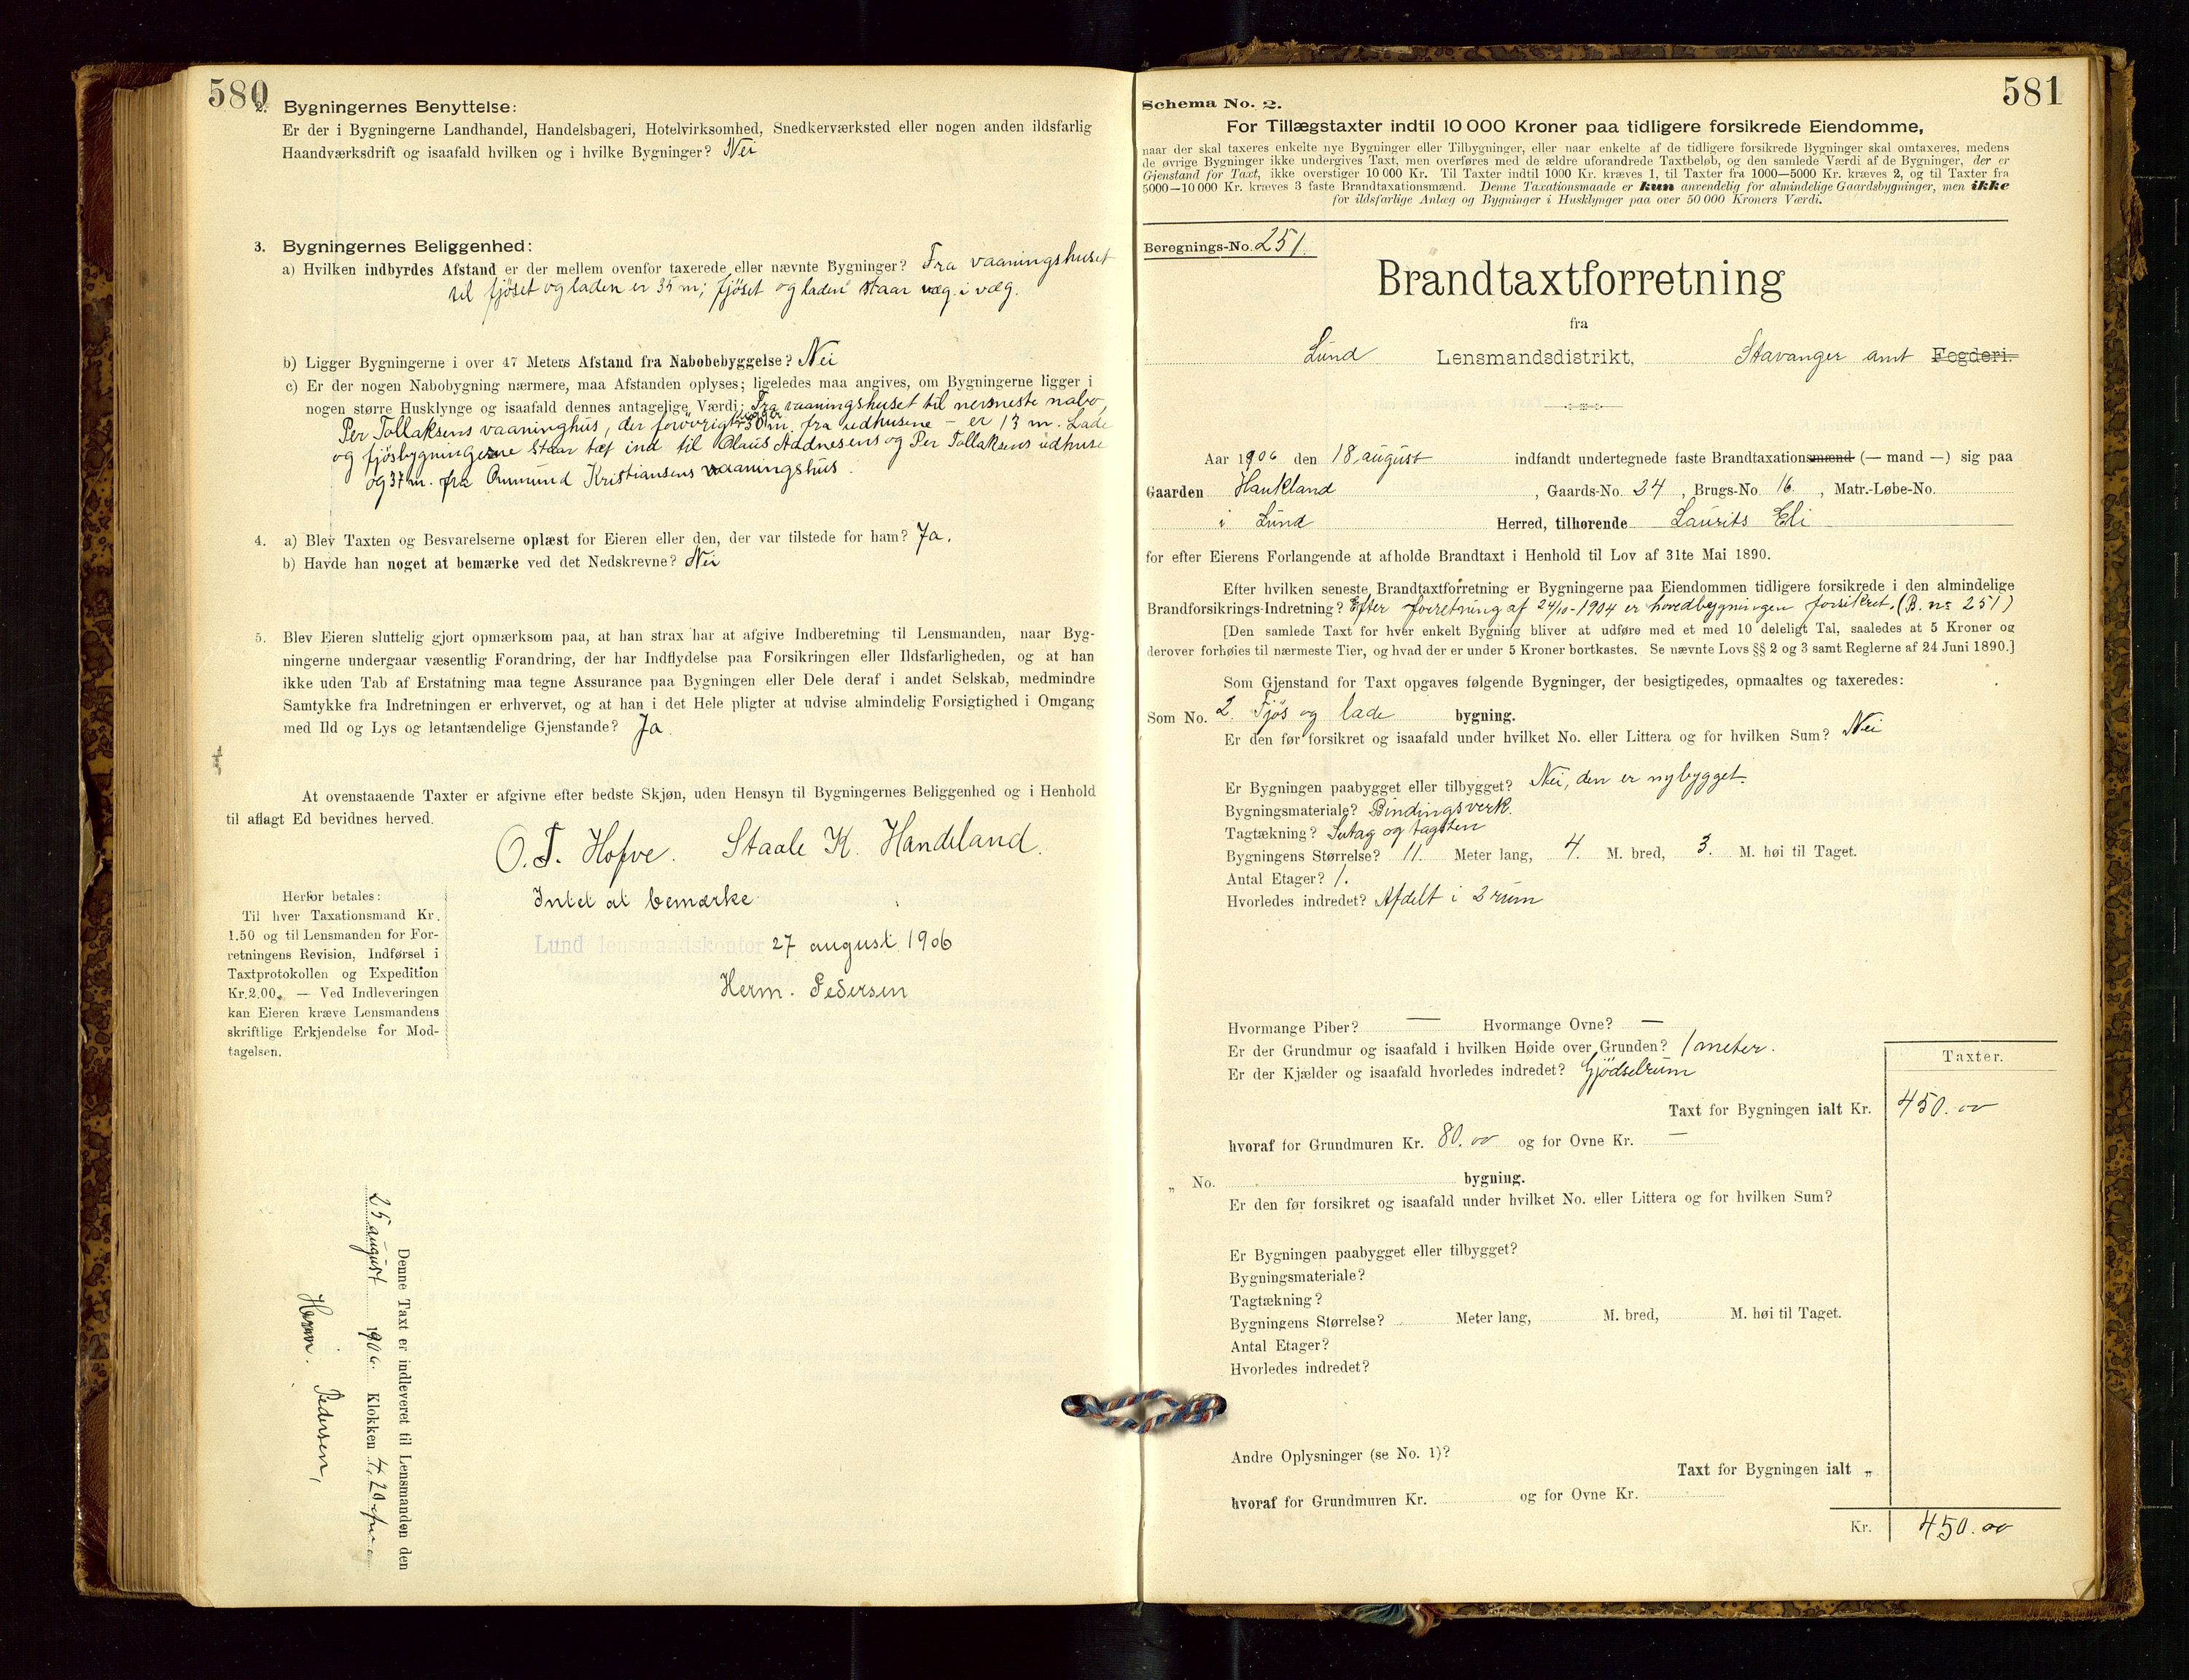 580
2. Bygningernes Benyttelse:
Er der i Bygningerne Landhandel, Handelsbageri, Hotelvirksomhed, Snedkerværksted eller nogen anden ildsfarlig
Haandværksdrift og isaafald hvilken og i hvilke Bygninger? Nei
3. Bygningernes Beliggenhed:
a) Hvilken indbyrdes Afstand er der mellem ovenfor taxerede eller nævnte Bygninger? Fra vaaningshuset
til fjöset og laden er 35 m; fjöset og laden staar væg i væg.
b) Ligger Bygningerne i over 47 Meters Afstand fra Nabobebyggelse? Nei
c) Er der nogen Nabobygning nærmere, maa Afstanden oplyses; ligeledes maa angives, om Bygningerne ligger i
nogen større Husklynge og isaafald dennes antagelige Værdi: Fra vaaningshuset til nermeste nabo,
Per Tollaksens vaaninghus, der forövrigt ligger 30 m. fra udhusene – er 13 m. Lade
og fjösbygningerne staar tæt ind til Olaus Aadnesens og Per Tollaksens udhuse
og 37 m. fra Ommund Kristiansens vaaningshus.
4. a) Blev Taxten og Besvarelserne oplæst for Eieren eller den, der var tilstede for ham? Ja.
b) Havde han noget at bemærke ved det Nedskrevne? Nei
5. Blev Eieren sluttelig gjort opmærksom paa, at han strax har at afgive Indberetning til Lensmanden, naar Byg-
ningerne undergaar væsentlig Forandring, der har Indflydelse paa Forsikringen eller Ildsfarligheden, og at han
ikke uden Tab af Erstatning maa tegne Assurance paa Bygningen eller Dele deraf i andet Selskab, medmindre
Samtykke fra Indretningen er erhvervet, og at han i det Hele pligter at udvise almindelig Forsigtighed i Omgang
med Ild og Lys og letantændelige Gjenstande? Ja
At ovenstaaende Taxter er afgivne efter bedste Skjøn, uden Hensyn til Bygningernes Beliggenhed og i Henhold
til aflagt Ed bevidnes herved.
O. T. Hofve. Staale K. Handeland.
Intet at bemærke
Lund lensmandskontor 27 august 1906
Herm. Pedersen
Herfor betales:
Til hver Taxationsmand Kr.
1.50 og til Lensmanden for For-
retningens Revision, Indførsel i
Taxtprotokollen og Expedition
Kr. 2.00. — Ved Indleveringen
kan Eieren kræve Lensmandens
skriftlige Erkjendelse for Mod-
tagelsen.
Denne Taxt er indleveret til Lensmanden den
25 august 1906. Klokken 4,20
Herm. Pedersen,
581
Schema No. 2.
For Tillægstaxter indtil 10 000 Kroner paa tidligere forsikrede Eiendomme,
naar der skal taxeres enkelte nye Bygninger eller Tilbygninger, eller naar enkelte af de tidligere forsikrede Bygninger skal omtaxeres, medens
de øvrige Bygninger ikke undergives Taxt, men overføres med de ældre uforandrede Taxtbeløb, og den samlede Værdi af de Bygninger, der er
Gjenstand for Taxt, ikke overstiger 10 000 Kr. Til Taxter indtil 1000 Kr. kræves 1, til Taxter fra 1000—5000 Kr. kræves 2, og til Taxter fra
5000—10 000 Kr. kræves 3 faste Brandtaxationsmænd. Denne Taxationsmaade er kun anvendelig for almindelige Gaardsbygninger, men ikke
for ildsfarlige Anlæg og Bygninger i Husklynger paa over 50 000 Kroners Værdi.
Beregnings-No. 251.
Brandtaxtforretning
fra
Lund Lensmandsdistrikt, Stavanger amt Fogderi.
Aar 1906 den 18 august indfandt undertegnede faste Brandtaxationsmænd (— mand —) sig paa
Gaarden Haukland, Gaards-No. 24, Brugs-No. 16., Matr.-Løbe-No.
i Lund Herred, tilhørende Laurits Eli
for efter Eierens Forlangende at afholde Brandtaxt i Henhold til Lov af 31te Mai 1890.
Efter hvilken seneste Brandtaxtforretning er Bygningerne paa Eiendommen tidligere forsikrede i den almindelige
Brandforsikrings-Indretning? Efter forretning af 24/10-1904 er hovedbygningen forsikret. (B. no 251)
[Den samlede Taxt for hver enkelt Bygning bliver at udføre med et med 10 deleligt Tal, saaledes at 5 Kroner og
derover forhøies til nærmeste Tier, og hvad der er under 5 Kroner bortkastes. Se nævnte Lovs §§ 2 og 3 samt Reglerne af 24 Juni 1890.]
Som Gjenstand for Taxt opgaves følgende Bygninger, der besigtigedes, opmaaltes og taxeredes:
Som No. 2. Fjös og lade bygning.
Er den før forsikret og isaafald under hvilket No. eller Littera og for hvilken Sum? Nei
Er Bygningen paabygget eller tilbygget? Nei, den er nybygget.
Bygningsmateriale? Bindingsverk.
Tagtækning? Sutag og tagsten
Bygningens Størrelse? 11. Meter lang, 4. M. bred, 3. M. høi til Taget.
Antal Etager? 1.
Hvorledes indredet? Afdelt i 2 rum
Hvormange Piber? — Hvormange Ovne? —
Er der Grundmur og isaafald i hvilken Høide over Grunden? 1 meter.
Er der Kjælder og isaafald hvorledes indredet? Gjödselrum
Taxter.
Taxt for Bygningen ialt Kr. 450.00
hvoraf for Grundmuren Kr. 80.00 og for Ovne Kr. —
„ No. bygning.
Er den før forsikret og isaafald under hvilket No. eller Littera og for hvilken Sum?
Er Bygningen paabygget eller tilbygget?
Bygningsmateriale?
Tagtækning?
Bygningens Størrelse? Meter lang, M. bred, M. høi til Taget.
Antal Etager?
Hvorledes indredet?
Andre Oplysninger (se No. 1)?
Taxt for Bygningen ialt „
hvoraf for Grundmuren Kr. og for Ovne Kr.
Kr. 450.00